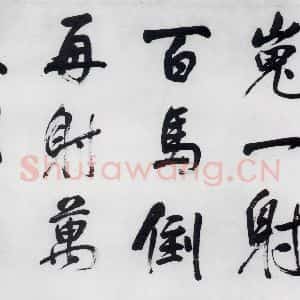 嵬一射
百馬倒
再射萬
Shufawang.CN